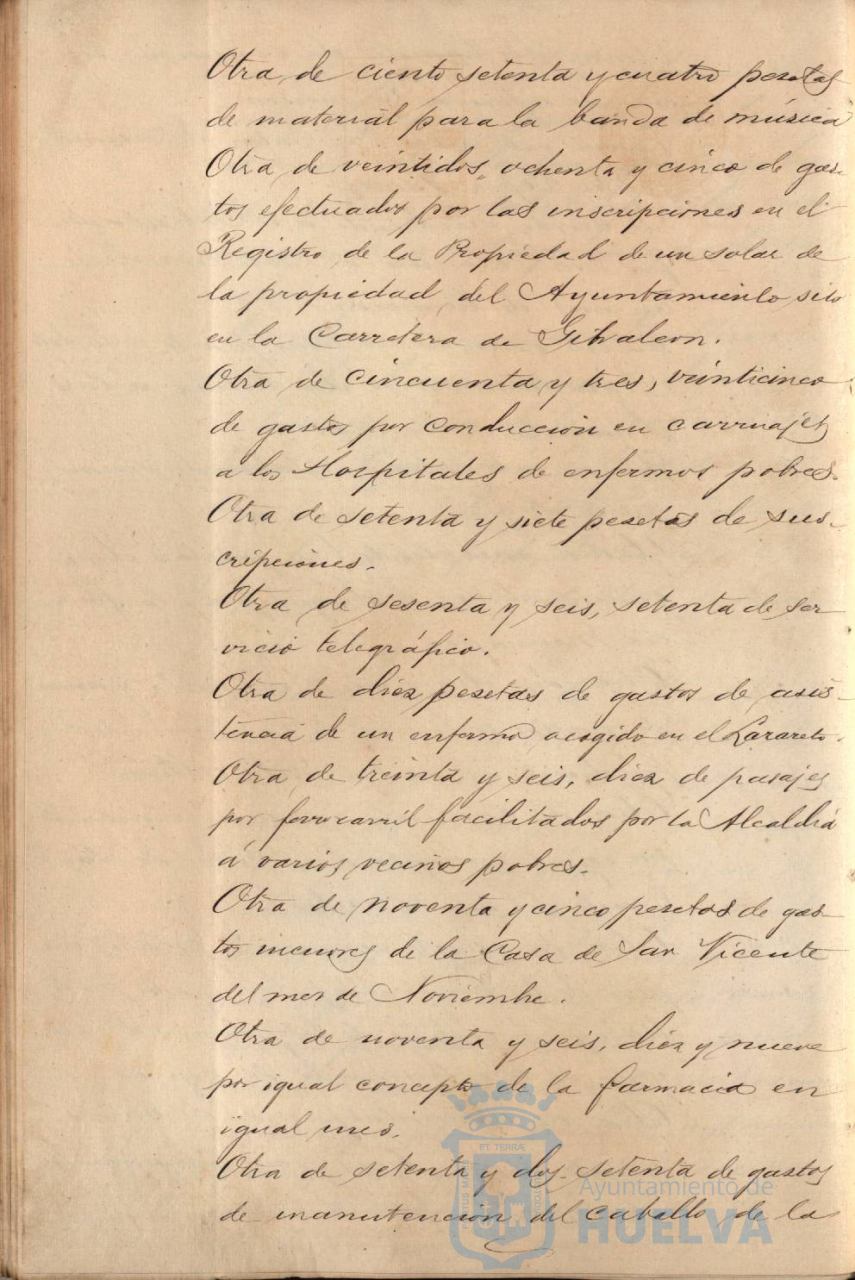 Otra de ciento setenta y cuatro pesetas
de material para la banda de música
Otra de veintidos, ochenta y cinco de gas-
tos efectuados por las inscripciones en el
Registro de la Propiedad de un solar de
la propiedad del Ayuntamiento sito
en la Carretera de Gibraleon.
Otra de cincuenta y tres, veinticinco
de gastos por conducción en carruajes
a los Hospitales de enfermos pobres.
Otra de setenta y siete pesetas de sus-
cripciones.
Otra de sesenta y seis, setenta de ser
vicio telegráfico.
Otra de diez pesetas de gastos de asis-
tencia de un enfermo acogido en el Lazareto.
Otra de treinta y seis, diez de pasajes
por ferrocarril facilitados por la Alcaldia
á varios vecinos pobres.
Otra de noventa y cinco pesetas de gas-
tos menores de la Casa de San Vicente
del mes de Noviembre.
Otra de noventa y seis, diez y nueve
por igual concepto de la farmacia en
igual mes.
Otra de setenta y dos, setenta de gastos
de manutencion del caballo de la
ET TERRÆ
Ayuntamiento de
HUELVA